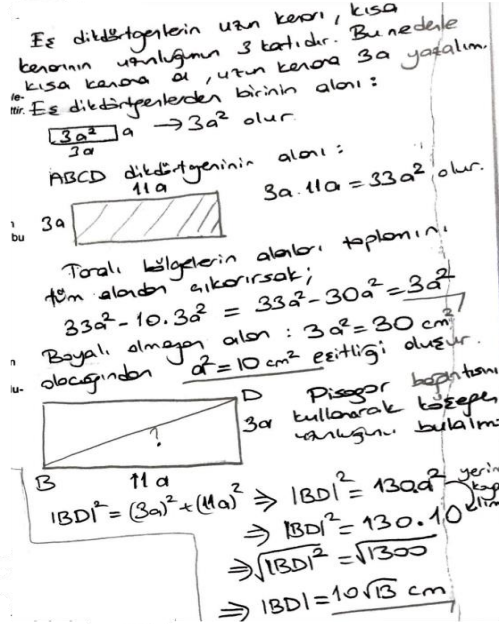 Eş dikdörtgenlerin uzun kenarı, kısa
kenarının uzunluğunun 3 katıdır. Bu nedenle
kısa kenara a, uzun kenara 3a yazalım.
Eş dikdörtgenlerden birinin alanı:
3a² a → 3a² olur
3a
ABCD dikdörtgeninin alanı:
11a
3a 3a.11a = 33a² olur.
bu
Taralı bölgelerin alanları toplamını
tüm alandan çıkarırsak;
33a² - 10.3a² = 33a² - 30a² = 3a²
Boyalı olmayan alan : 3a² = 30 cm²
olacağından a² = 10 cm² eşitliği oluşur.
D Pisagor bağıntısını
3a kullanarak köşegen
? uzunluğunu bulalım
B 11a
|BD|² = (3a)² + (11a)² ⇒ |BD|² = 130a²
⇒ |BD|² = 130.10
⇒ √|BD|² = √1300
⇒ |BD| = 10√13 cm